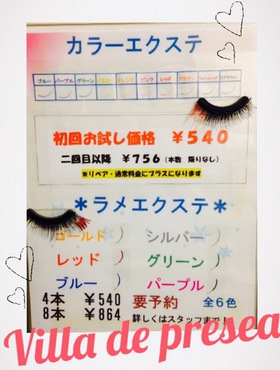 カラーエクステ
ブルー パープル グリーン ピンク レッド
初回お試し価格 ¥540
二回目以降 ¥756(本数 限りなし)
※リペア・通常料金にプラスになります
*ラメエクステ*
ゴールド シルバー
レッド グリーン
ブルー パープル
4本 ¥540 要予約 全6色
8本 ¥864 詳しくはスタッフまで!
Villa de presea